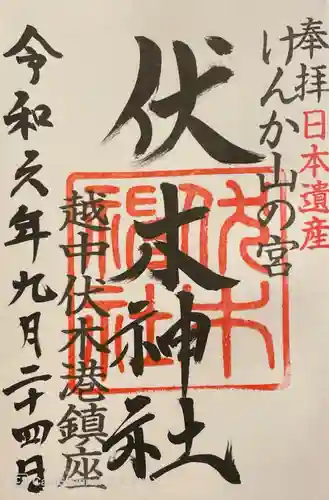 奉拝
日本遺産
けんか山の宮
伏木神社
伏木神社
越中伏木港鎮座
令和元年九月二十四日